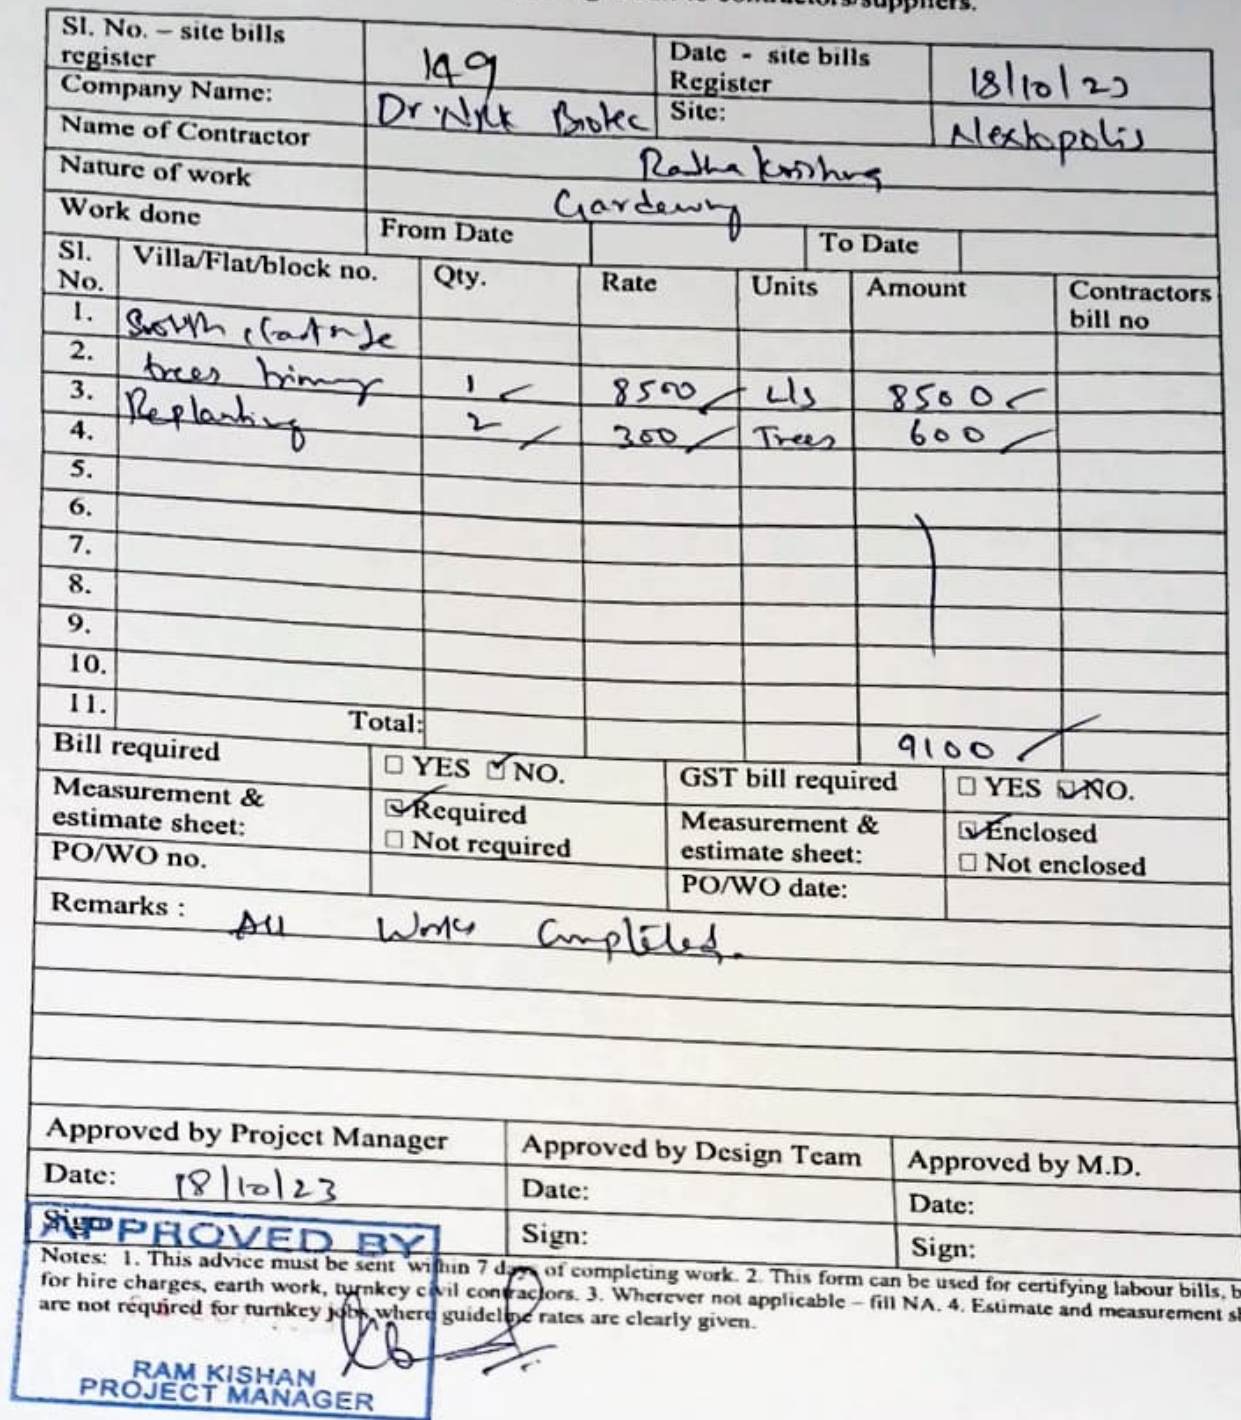 contractors/suppliers.
Sl. No. – site bills register 149 Date - site bills Register 18/10/23
Company Name: Dr NRK Biotec Site: Nextopolis
Name of Contractor Radha Krishna
Nature of work Gardening
Work done From Date To Date
Sl. No. Villa/Flat/block no. Qty. Rate Units Amount Contractors bill no
1. South
2. trees 1 8500 L/s 8500
3. Replanting 2 300 Trees 600
4.
5.
6.
7.
8.
9.
10.
11.
Total: 9100
Bill required ☐ YES ☑ NO. GST bill required ☐ YES ☑ NO.
Measurement & estimate sheet: ☑ Required ☐ Not required Measurement & estimate sheet: ☑ Enclosed ☐ Not enclosed
PO/WO no. PO/WO date:
Remarks : All Works Completed.
Approved by Project Manager Approved by Design Team Approved by M.D.
Date: 18/10/23 Date: Date:
Sign: Sign: Sign:
APPROVED BY
Notes: 1. This advice must be sent within 7 days of completing work. 2. This form can be used for certifying labour bills, b
for hire charges, earth work, turnkey civil contractors. 3. Wherever not applicable – fill NA. 4. Estimate and measurement s
are not required for turnkey jobs where guideline rates are clearly given.
RAM KISHAN
PROJECT MANAGER